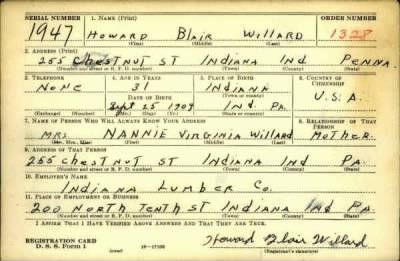 SERIAL NUMBER 1. NAME (Print) ORDER NUMBER
1947 Howard Blair Willard 1328
(First) (Middle) (Last)
2. ADDRESS (Print)
255 Chestnut St Indiana Ind Penna.
(Number and street or R. F. D. number) (Town) (County) (State)
3. TELEPHONE 4. AGE IN YEARS 5. PLACE OF BIRTH 6. COUNTRY OF CITIZENSHIP
None 31 Indiana
DATE OF BIRTH (Town or county) U.S.A.
Sept 25 1909 Ind. Pa.
(Exchange) (Number) (Mo.) (Day) (Yr.) (State or country)
7. NAME OF PERSON WHO WILL ALWAYS KNOW YOUR ADDRESS 8. RELATIONSHIP OF THAT PERSON
Mrs Nannie Virginia Willard Mother.
(Mr., Mrs., Miss) (First) (Middle) (Last)
9. ADDRESS OF THAT PERSON
255 Chestnut St Indiana Ind Pa.
(Number and street or R. F. D. number) (Town) (County) (State)
10. EMPLOYER'S NAME
Indiana Lumber Co.
11. PLACE OF EMPLOYMENT OR BUSINESS
200 North Tenth St Indiana Ind Pa.
(Number and street or R. F. D. number) (Town) (County) (State)
I AFFIRM THAT I HAVE VERIFIED ABOVE ANSWERS AND THAT THEY ARE TRUE.
REGISTRATION CARD
D. S. S. Form 1 Howard Blair Willard
(Registrant's signature)